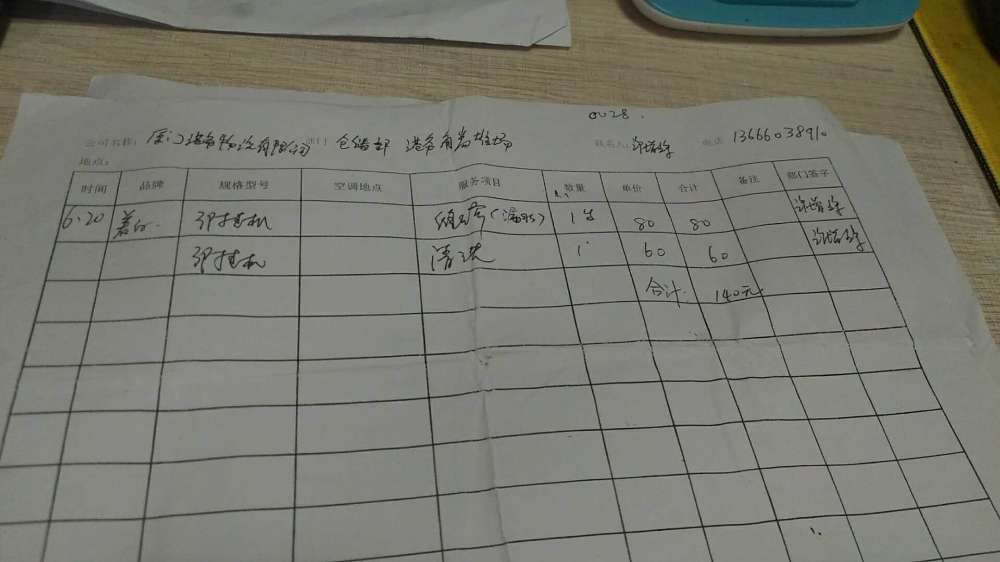 0028.
公司名称: 厦门港务物流有限公司 部门 仓储部 港务 堆场 联系人: 电话 13666038910
地点:
时间 品牌 规格型号 空调地点 服务项目 数量 单价 合计 备注 部门签字
6.20 挂机 (漏水) 1台 80 80
挂机 清洗 1 60 60
合计: 140元